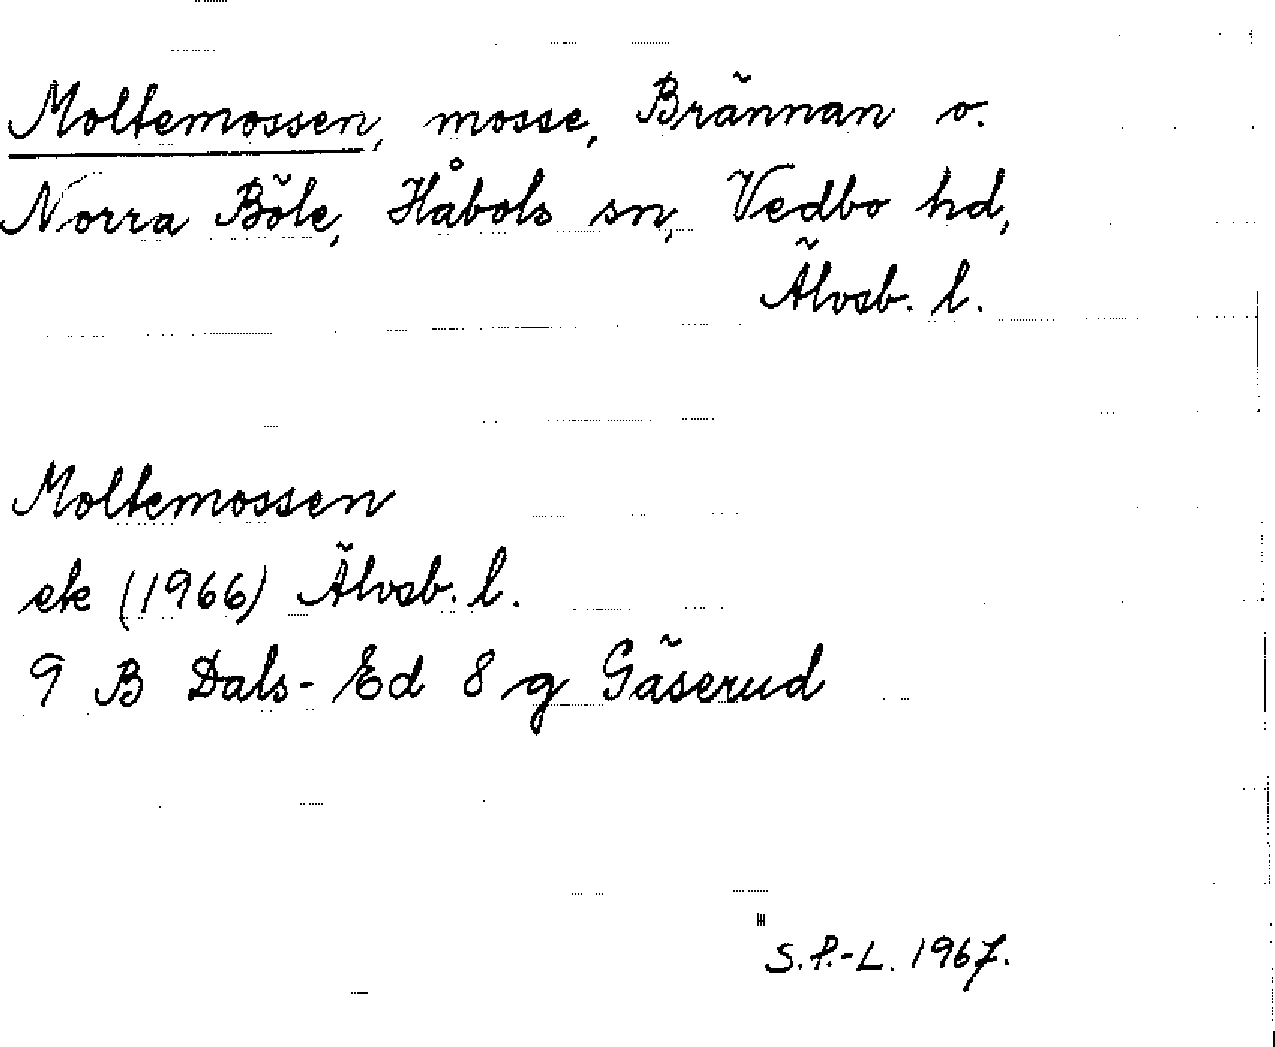 Moltemossen, mosse, Brännan o.
Norra Böle, Håbols sn, Vedbo hd,
Älvsb. l.
Moltemossen
ek (1966) Älvsb. l.
9 B Dals-Ed 8 g Gäserud
S.P.-L. 1967.